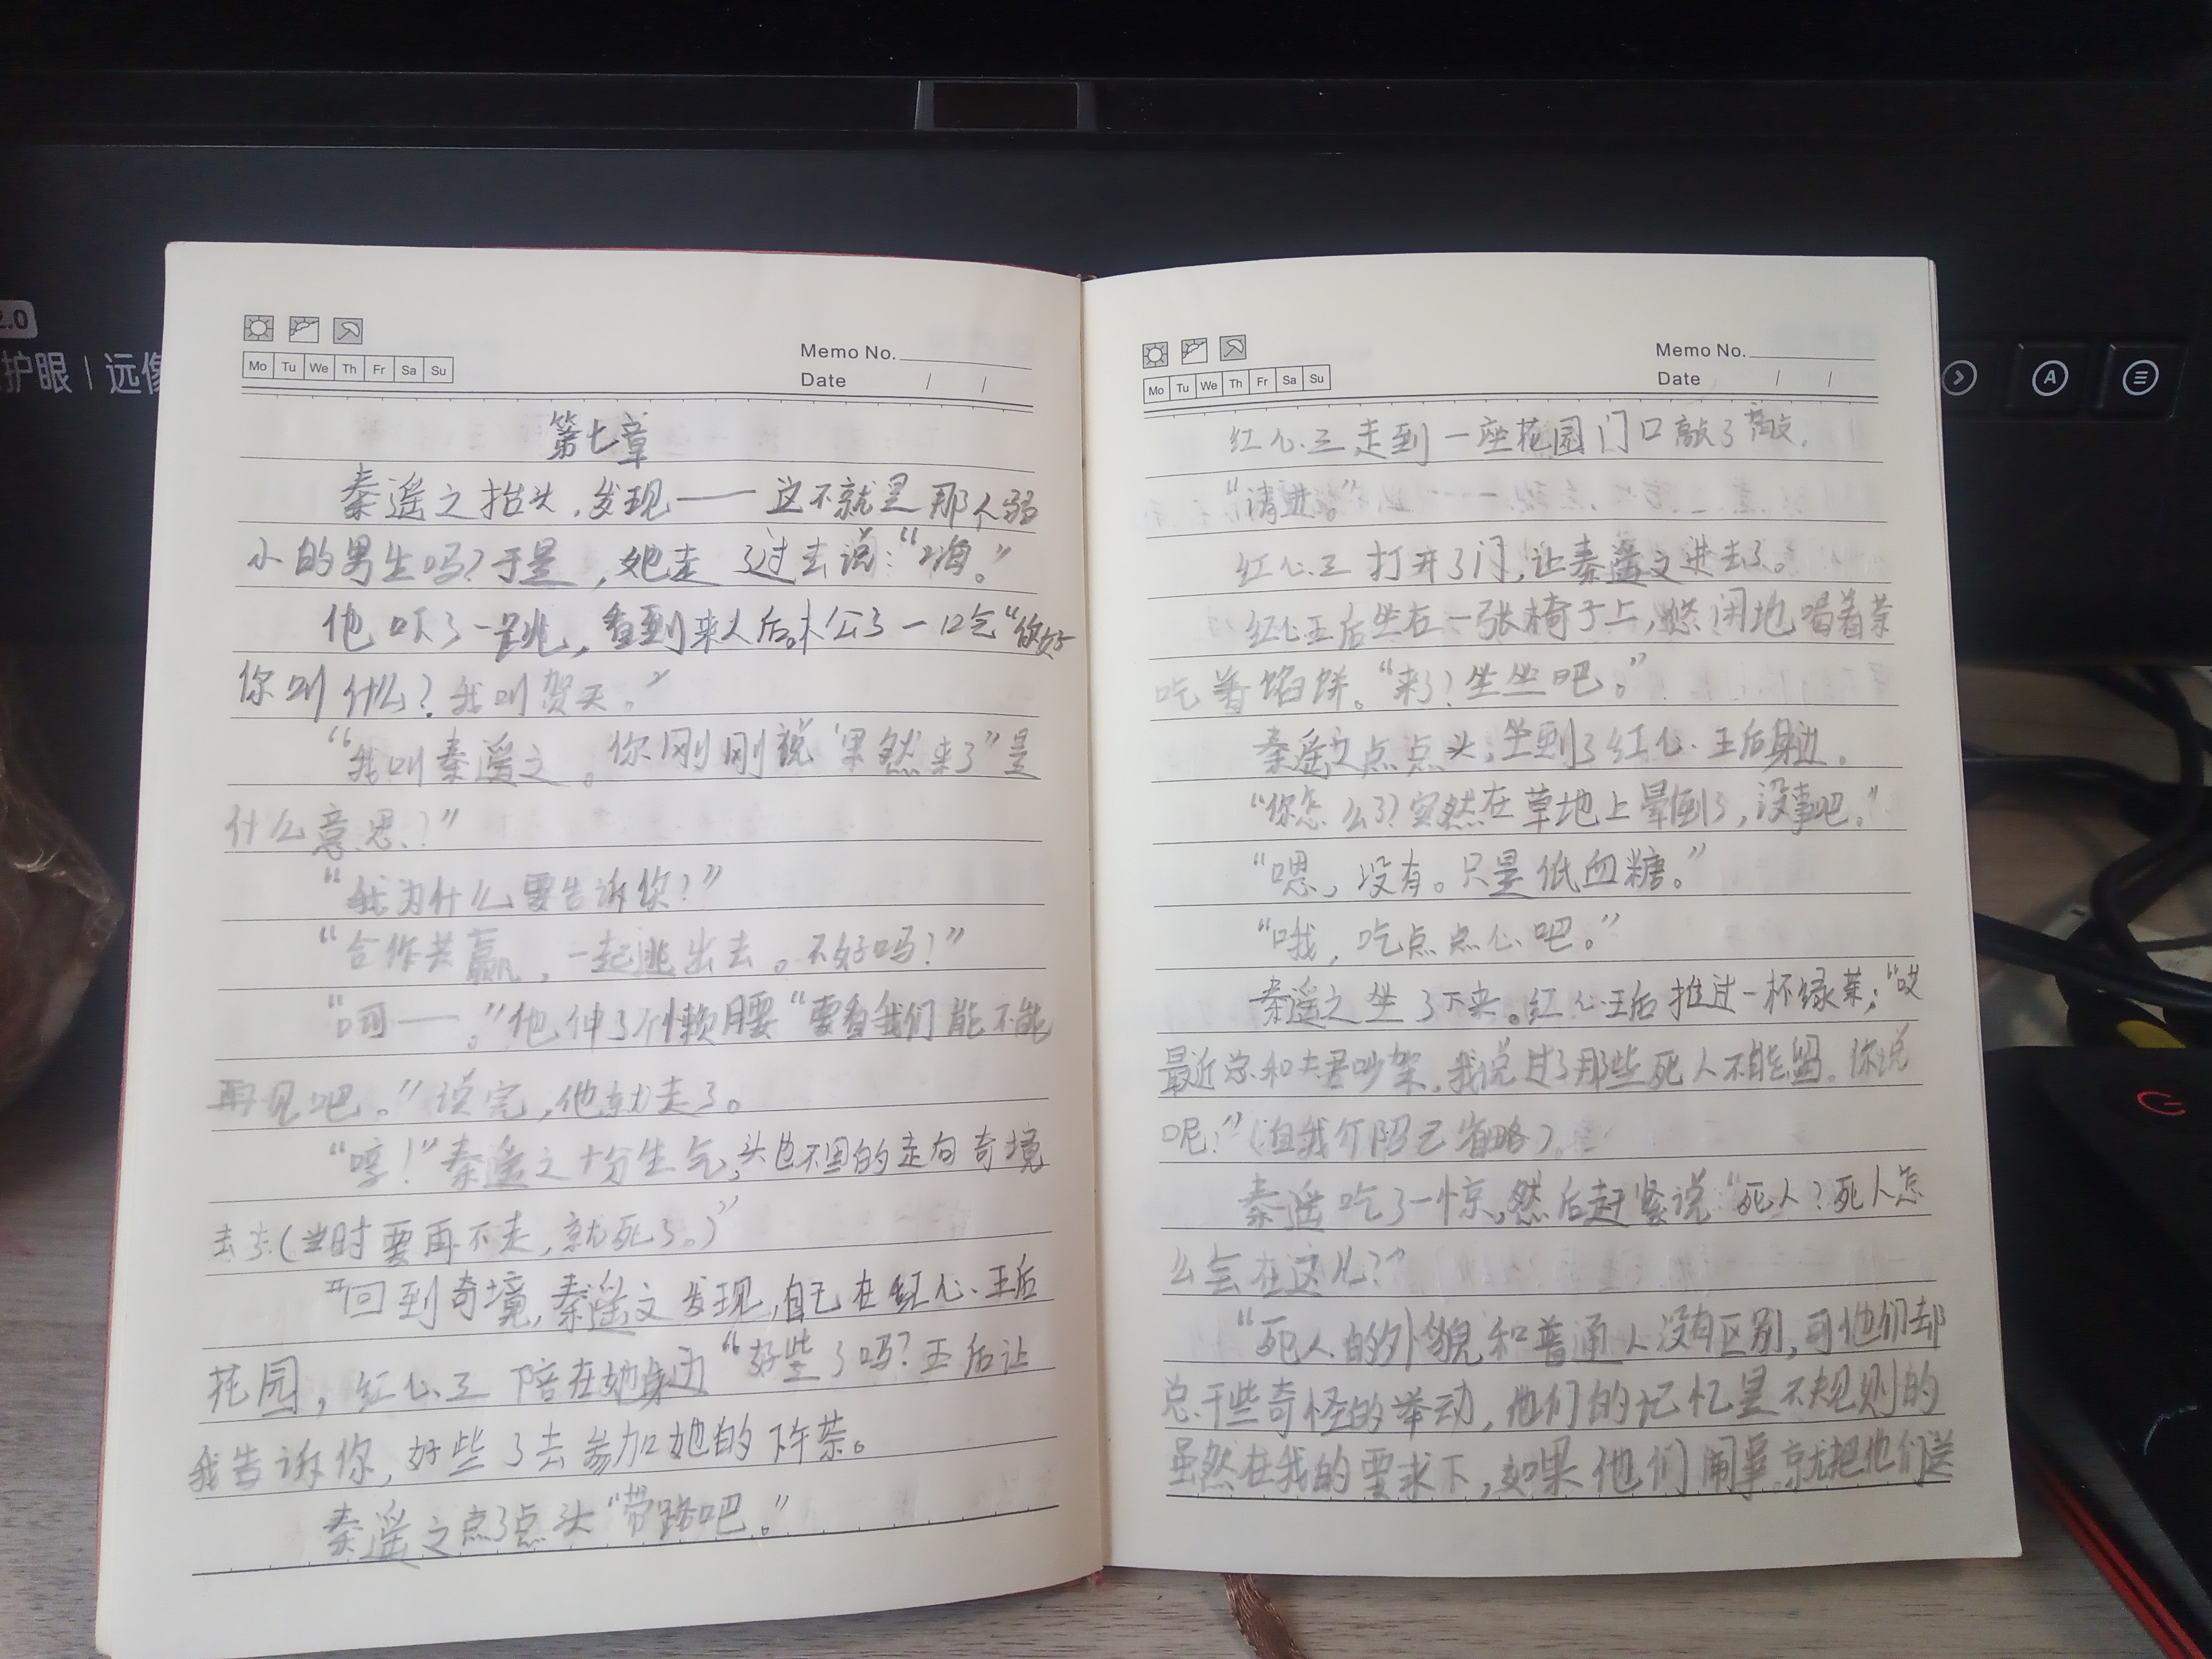 2.0
护眼 | 远像
A
Mo Tu We Th Fr Sa Su
Memo No.
Date / /
第七章
秦遥之抬头,发现——这不就是那个弱
小的男生吗?于是,她走了过去说:“嗨。”
他吓了一跳,看到来人后。松了一口气“你好
你叫什么?我叫贺天。”
“我叫秦遥之。你刚刚说‘果然来了”是
什么意思?”
“我为什么要告诉你?”
“合作共赢,一起逃出去。不好吗?”
“呵——。”他伸了个懒腰“要看我们能不能
再见吧。”说完,他就走了。
“哼!”秦遥之十分生气,头也不回的走向奇境
去去(当时要再不走,就死了。)”
回到奇境,秦遥之发现,自己在红心王后
花园,红心三陪在她身边“好些了吗?王后让
我告诉你,好些了去参加她的下午茶。
秦遥之点了点头“带路吧。”
Mo Tu We Th Fr Sa Su
Memo No.
Date / /
红心三走到一座花园门口敲了敲.
“请进。”
红心三打开了门,让秦遥之进去了。
红心王后坐在一张椅子上,悠闲地喝着茶
吃着馅饼。“来了?坐坐吧。”
秦遥之点点头,坐到了红心王后身边.
“你怎么了?突然在草地上晕倒了,没事吧。”
“嗯,没有。只是低血糖。”
“哦,吃点点心吧。”
秦遥之坐了下来。红心王后推过一杯绿茶;“哎
最近总和夫君吵架,我说过了那些死人不能留。你说
呢?”(自我介绍已省略)
秦遥吃了一惊,然后赶紧说“死人?死人怎
么会在这儿?”
“死人的外貌和普通人没有区别,可他们却
总干些奇怪的举动,他们的记忆是不规则的
虽然在我的要求下,如果他们闹事.就把他们送